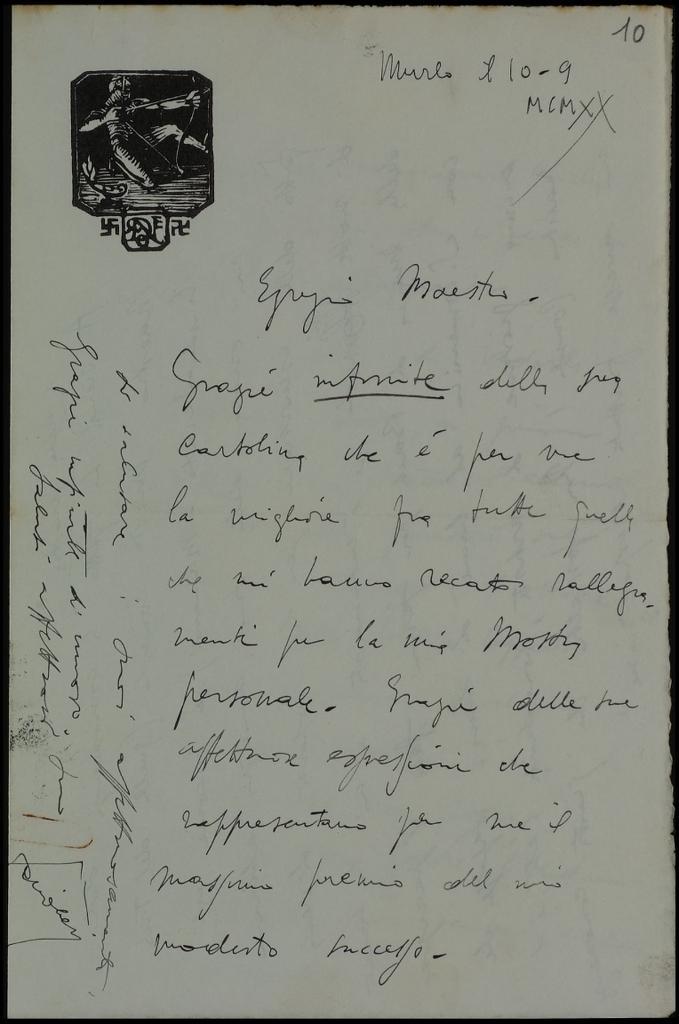 10
Murlo il 10-9
MCMXX
Egregio Maestro.
Grazie infinite della sua
cartolina che é per me
la migliore fra tutte quelle
che mi hanno recato rallegra-
menti per la mia Mostra
personale. Grazie delle sue
affettuose espressioni che
rappresentano per me il
massimo premio del mio
modesto successo.
di salutare i suoi affettuosamente.
Grazie infinite di nuovo.
Saluti affettuosi suo